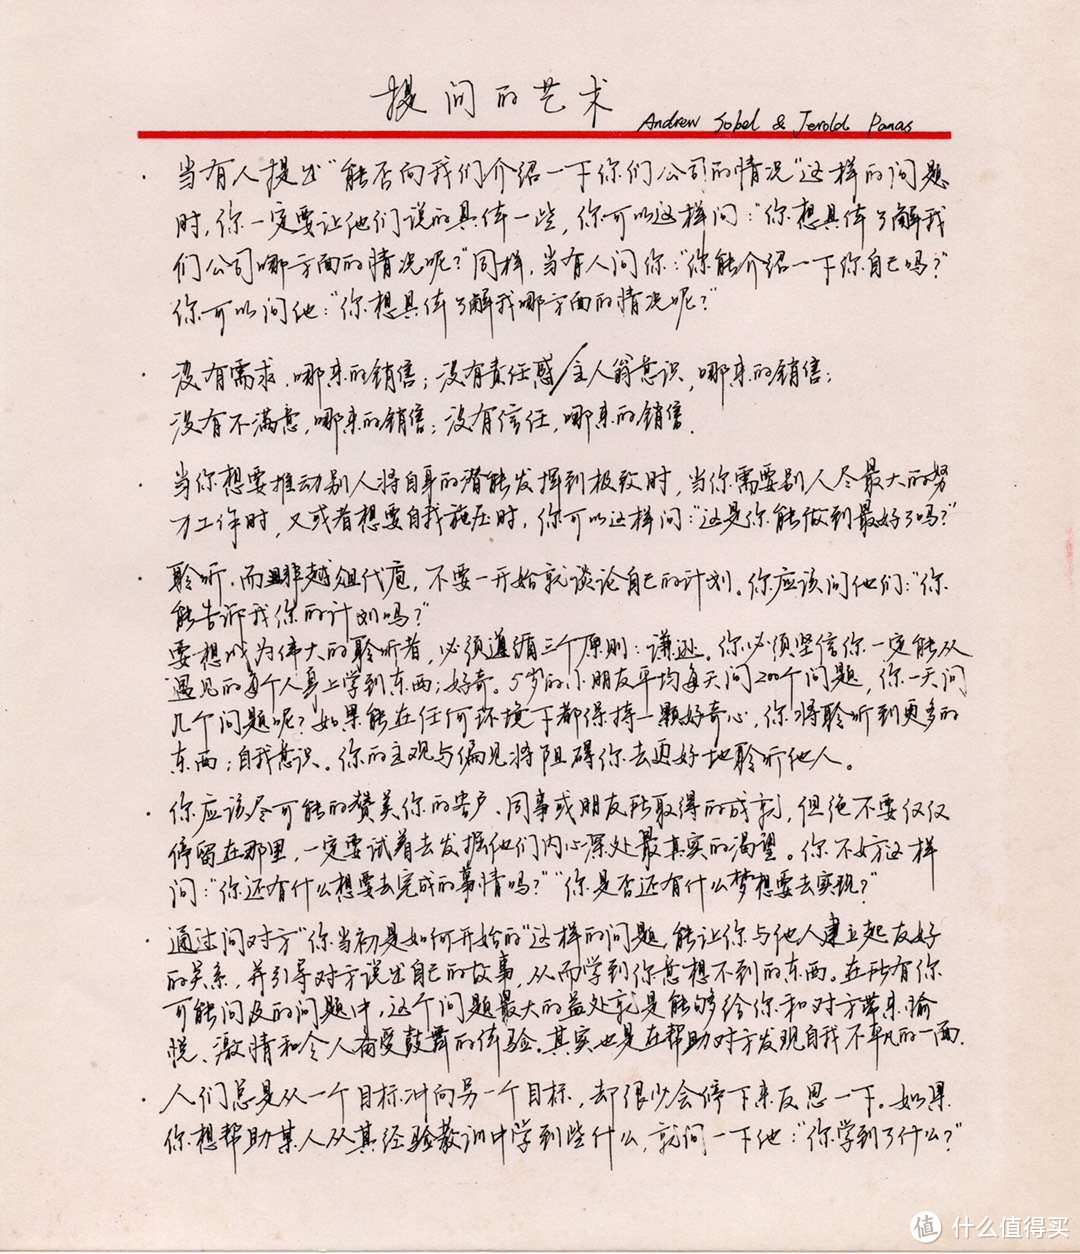 提问的艺术
Andrew Sobel & Jerold Panas
· 当有人提出“能否向我们介绍一下你们公司的情况”这样的问题
时,你一定要让他们说的具体一些,你可以这样问:“你想具体了解我
们公司哪方面的情况呢?”同样,当有人问你:“你能介绍一下你自己吗?”
你可以问他:“你想具体了解我哪方面的情况呢?”
· 没有需求,哪来的销售;没有责任感/主人翁意识,哪来的销售;
没有不满意,哪来的销售;没有信任,哪来的销售.
· 当你想要推动别人将自身的潜能发挥到极致时,当你需要别人尽最大的努
力工作时,又或者想要自我施压时,你可以这样问:“这是你能做到最好了吗?”
· 聆听,而非越俎代庖,不要一开始就谈论自己的计划。你应该问他们:“你
能告诉我你的计划吗?”
要想成为伟大的聆听者,必须遵循三个原则:谦逊。你必须坚信你一定能从
遇见的每个人身上学到东西;好奇。5岁的小朋友平均每天问200个问题,你一天问
几个问题呢?如果能在任何环境下都保持一颗好奇心,你将聆听到更多的
东西;自我意识。你的主观与偏见将阻碍你去更好地聆听他人。
· 你应该尽可能的赞美你的客户、同事或朋友所取得的成就,但绝不要仅仅
停留在那里,一定要试着去发掘他们内心深处最真实的渴望。你不妨这样
问:“你还有什么想要去完成的事情吗?”“你是否还有什么梦想要去实现?”
· 通过问对方“你当初是如何开始的”这样的问题,能让你与他人建立起友好
的关系,并引导对方说出自己的故事,从而学到你意想不到的东西。在所有你
可能问及的问题中,这个问题最大的益处就是能够给你和对方带来愉
悦、激情和令人备受鼓舞的体验。其实也是在帮助对方发现自我不平凡的一面.
· 人们总是从一个目标冲向另一个目标,却很少会停下来反思一下。如果
你想帮助某人从其经验教训中学到些什么,就问一下他:“你学到了什么?”
值 什么值得买